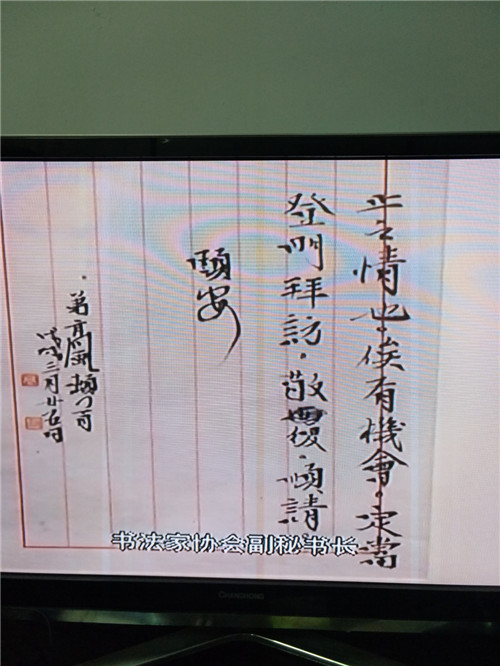 平之情也。俟有機會。定當
登門拜訪。敬覆。順請
頤安
弟 頓首
戊戌三月廿五日
书法家协会副秘书长
CHANGHONG